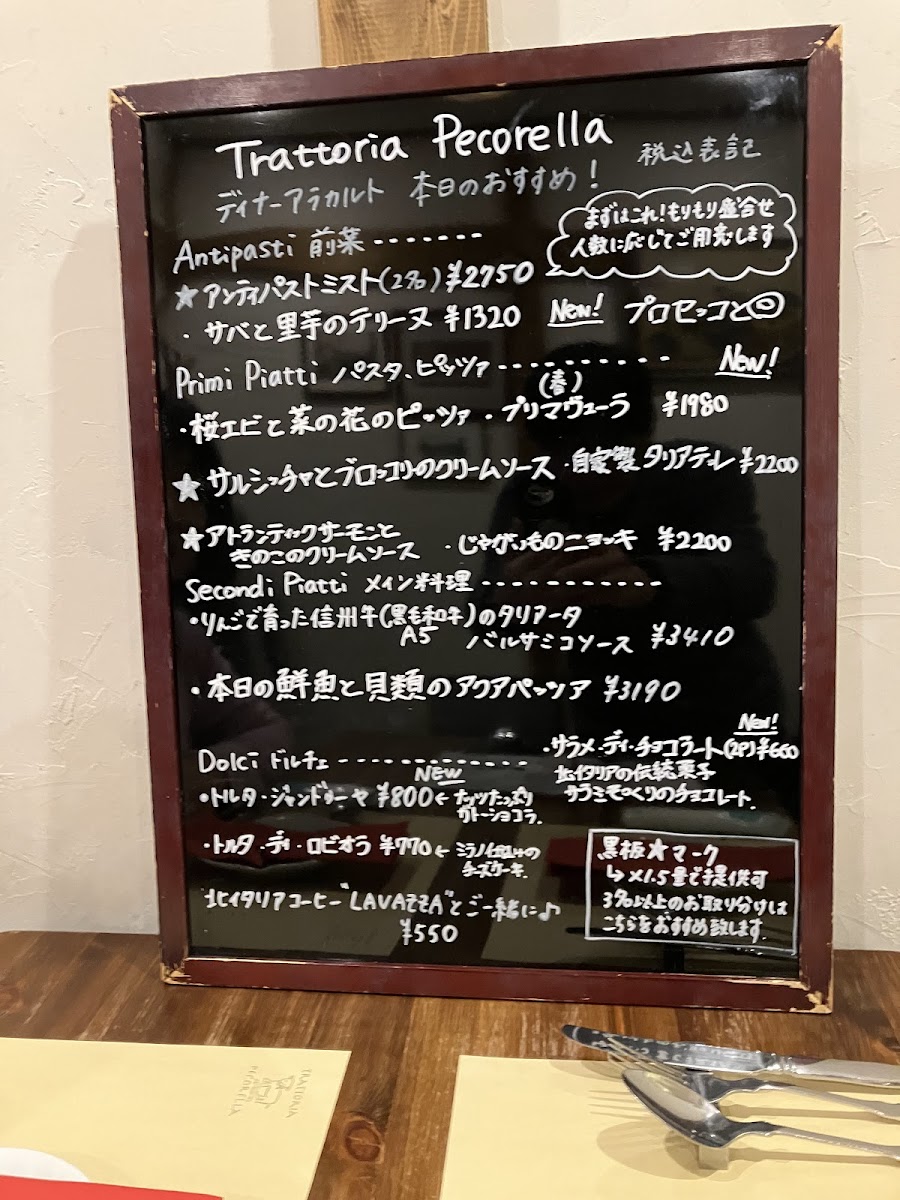 Trattoria Pecorella
税込表記
ディナーアラカルト 本日のおすすめ!
まずはこれ!もりもり盛合せ
人数に応じてご用意します
Antipasti 前菜 -------
★アンティパストミスト(2名) ¥2750
・サバと里芋のテリーヌ ¥1320 New! プロセッコと◎
Primi Piatti パスタ、ピッツァ ----------- New!
・桜エビと菜の花のピッツァ・プリマヴェーラ(春) ¥1980
★サルシッチャとブロッコリのクリームソース・自家製タリアテッレ ¥2200
★アトランティックサーモンと
きのこのクリームソース ・じゃがいものニョッキ ¥2200
Secondi Piatti メイン料理 ------------
・りんごで育った信州牛(黒毛和牛)のタリアータ
A5 バルサミコソース ¥3410
・本日の鮮魚と貝類のアクアパッツァ ¥3190
Dolci ドルチェ ------------
NEW
・トルタ・ジャンドゥーヤ ¥800 ← ナッツたっぷり
ガトーショコラ.
・トルタ・ディ・ロビオラ ¥770 ← ミラノ仕込みの
チーズケーキ.
New!
・サラメ・ディ・チョコラート(2P) ¥660
北イタリアの伝統菓子
サラミそっくりのチョコレート.
北イタリアコーヒー"LAVAZZA"とご一緒に♪
¥550
黒板★マーク
↳×1.5量で提供可
3名以上のお取り分けは
こちらをおすすめ致します.
TRATTORIA
PECORELLA